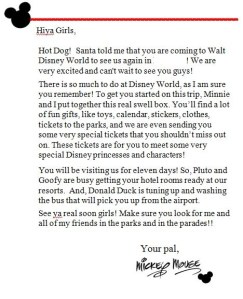 Hiya Girls,
Hot Dog! Santa told me that you are coming to Walt
Disney World to see us again in ! We are
very excited and can't wait to see you guys!
There is so much to do at Disney World, as I am sure
you remember! To get you started on this trip, Minnie
and I put together this real swell box. You'll find a lot
of fun gifts, like toys, calendar, stickers, clothes,
tickets to the parks, and we are even sending you
some very special tickets that you shouldn't miss out
on. These tickets are for you to meet some very
special Disney princesses and characters!
You will be visiting us for eleven days! So, Pluto and
Goofy are busy getting your hotel rooms ready at our
resorts. And, Donald Duck is tuning up and washing
the bus that will pick you up from the airport.
See ya real soon girls! Make sure you look for me and
all of my friends in the parks and in the parades!!
Your pal,
Mickey Mouse